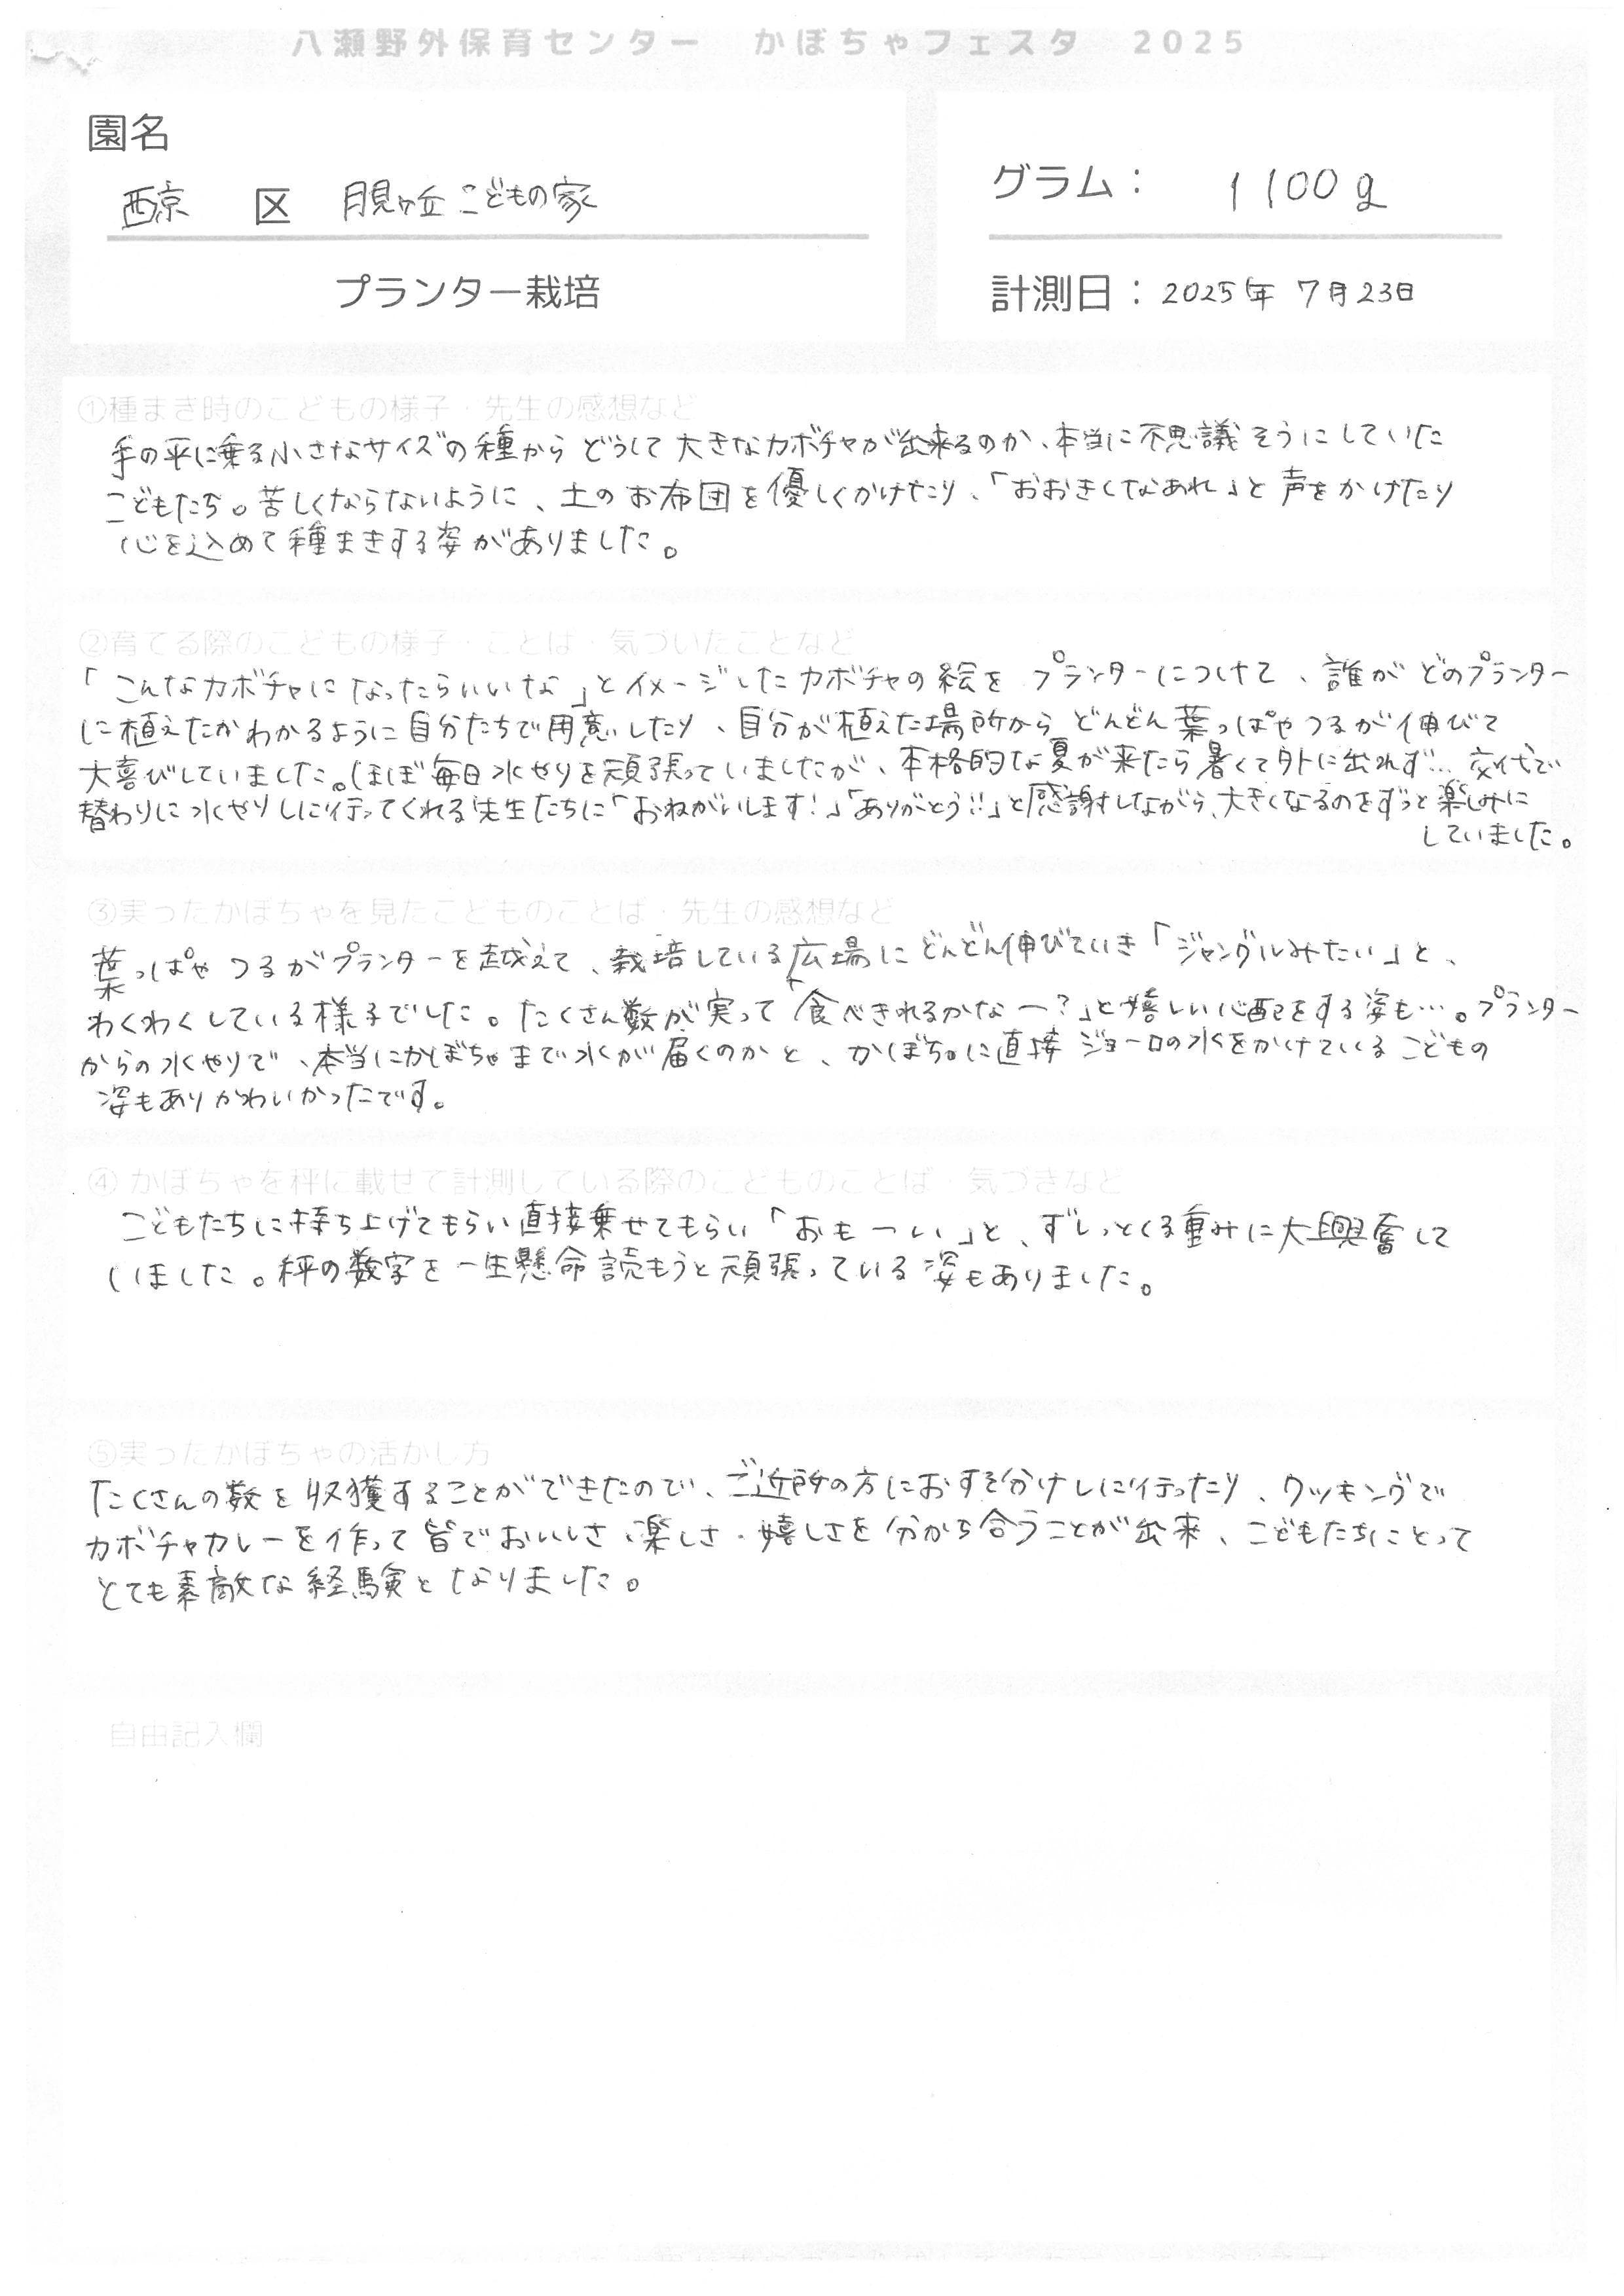 八瀬野外保育センター　かぼちゃフェスタ　2025
園名
西京　区　月見ヶ丘こどもの家
プランター栽培
グラム：　1100g
計測日：2025年 7月23日
①種まき時のこどもの様子・先生の感想など
手の平に乗る小さなサイズの種からどうして大きなカボチャが出来るのか、本当に不思議そうにしていた
こどもたち。苦しくならないように、土のお布団を優しくかけたり、「おおきくなあれ」と声をかけたり
心を込めて種まきする姿がありました。
②育てる際のこどもの様子・ことば・気づいたことなど
「こんなカボチャになったらいいな」とイメージしたカボチャの絵をプランターにつけて、誰がどのプランター
に植えたかわかるように自分たちで用意したり、自分が植えた場所からどんどん葉っぱやつるが伸びて
大喜びしていました。ほぼ毎日水やりを頑張っていましたが、本格的な夏が来たら暑くて外に出れず… 交代で
替わりに水やりしに行ってくれる先生たちに「おねがいします！」「ありがとう!!」と感謝しながら、大きくなるのをずっと楽しみに
していました。
③実ったかぼちゃを見たこどものことば・先生の感想など
葉っぱやつるがプランターを越えて、栽培している広場にどんどん伸びていき「ジャングルみたい」と、
わくわくしている様子でした。たくさん数が実って「食べきれるかなー？」と嬉しい心配をする姿も…。プランター
からの水やりで、本当にかぼちゃまで水が届くのかと、かぼちゃに直接ジョーロの水をかけているこどもの
姿もありかわいかったです。
④かぼちゃを秤に載せて計測している際のこどものことば・気づきなど
こどもたちに持ち上げてもらい直接乗せてもらい「おもーい」と、ずしっとくる重みに大興奮して
いました。秤の数字を一生懸命読もうと頑張っている姿もありました。
⑤実ったかぼちゃの活かし方
たくさんの数を収獲することができたので、ご近所の方におすそ分けしに行ったり、クッキングで
カボチャカレーを作って皆でおいしさ・楽しさ・嬉しさを分かち合うことが出来、こどもたちにとって
とても素敵な経験となりました。
自由記入欄